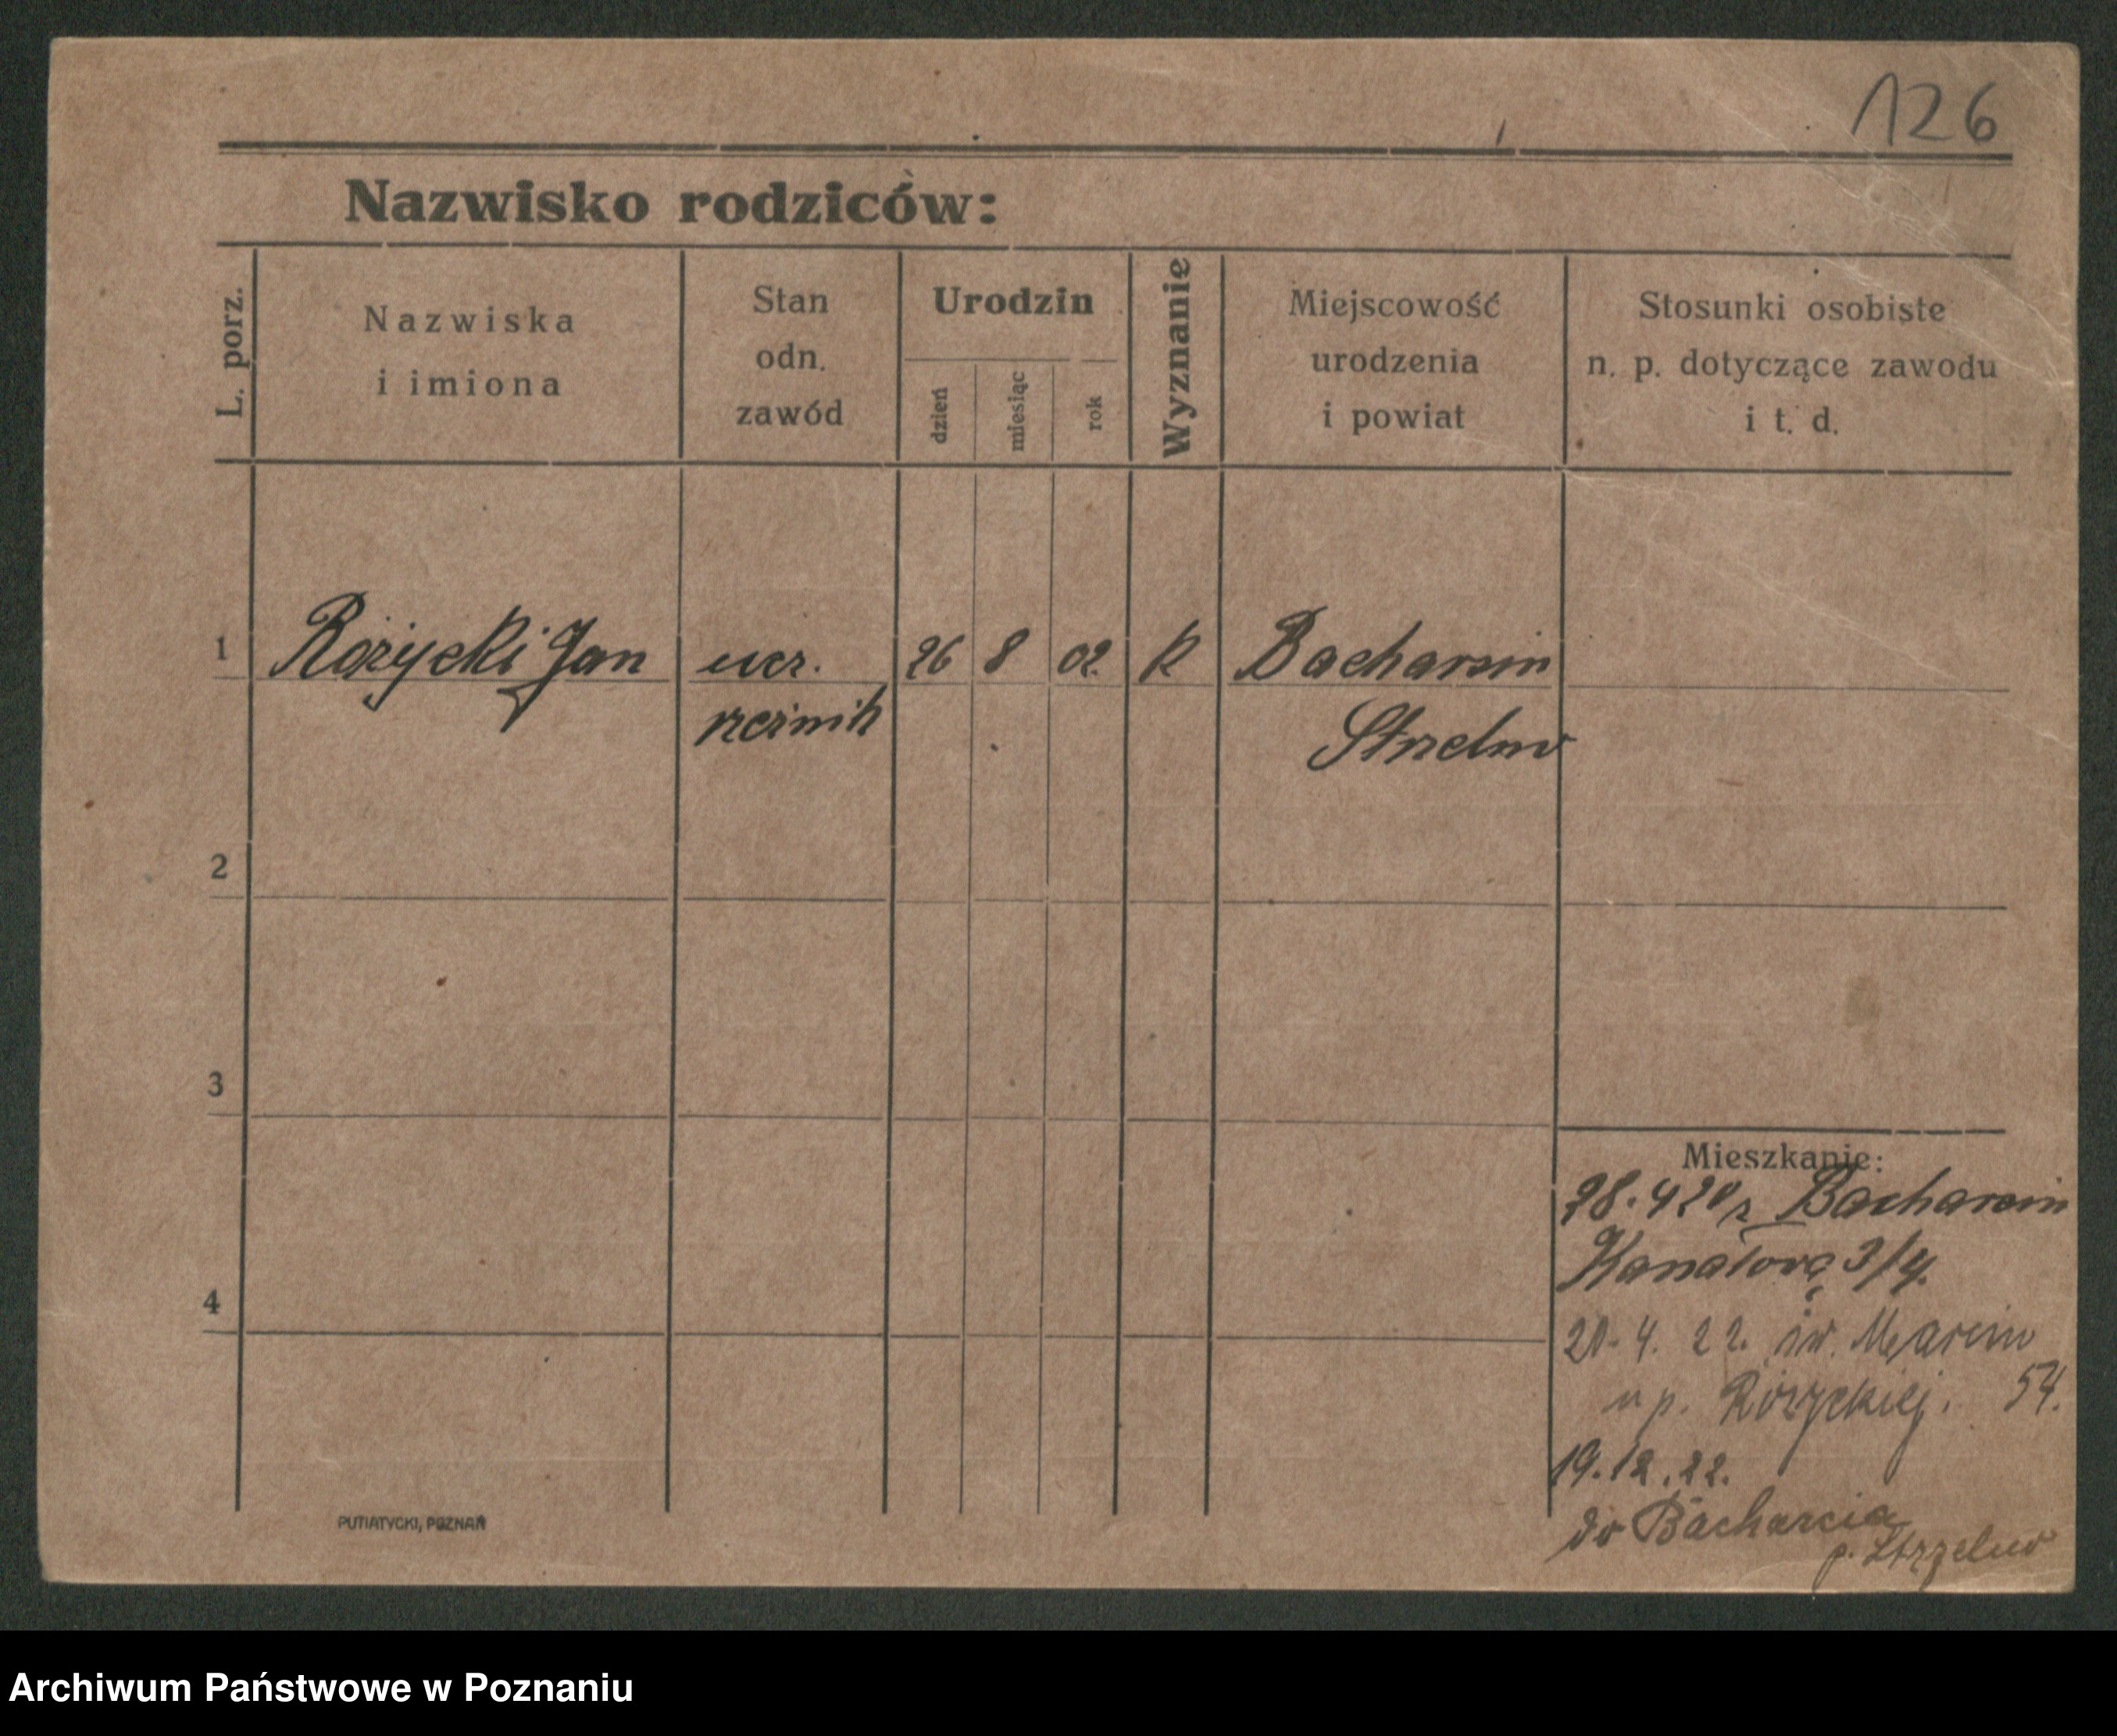 126
Nazwisko rodziców:
L. porz.
Nazwiska
i imiona
Stan
odn.
zawód
Urodzin
dzień
miesiąc
rok
Wyznanie
Miejscowość
urodzenia
i powiat
Stosunki osobiste
n. p. dotyczące zawodu
i t. d.
1 Rożycki Jan ucz. 26 8 02. k Bacharcin
rzeżnik Strzelno
2
3
4
Mieszkanie:
28.4 20 z Bacharcin
Kanałowa 3/4.
20.4.22. św. Marcin
u p. Różyckiej. 54.
19.12.22.
do Bacharcia
p. Strzelno
PUTIATYCKI, POZNAŃ
Archiwum Państwowe w Poznaniu